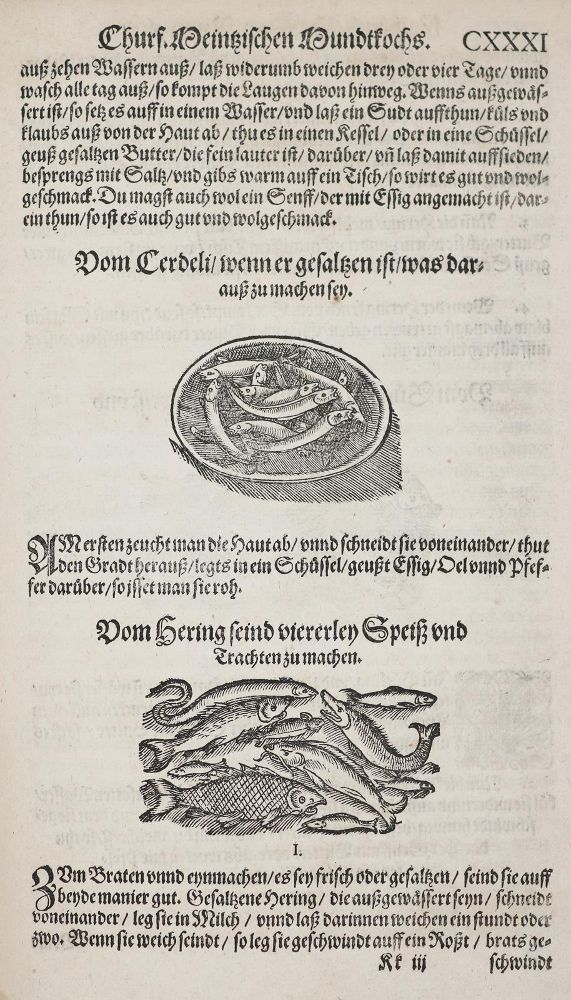 Churf. Meintzischen Mundtkochs. CXXXI
auß zehen Wassern auß/ laß widerumb weichen drey oder vier Tage/ vnnd
wasch alle tag auß/ so kompt die Laugen davon hinweg. Wenns außgewäs-
sert ist/ so setz es auff in einem Wasser/ vnd laß ein Sudt auffthun/ küls vnd
klaubs auß von der Haut ab/ thu es in einen Kessel/ oder in eine Schüssel/
geuß gesaltzen Butter/ die fein lauter ist/ darüber/ vñ laß damit auffsieden/
besprengs mit Saltz/ vnd gibs warm auff ein Tisch/ so wirt es gut vnd wol-
geschmack. Du magst auch wol ein Senff/ der mit Essig angemacht ist/ dar-
ein thun/ so ist es auch gut vnd wolgeschmack.
Vom Cerdeli/ wenn er gesaltzen ist/ was dar-
auß zu machen sey.
AM ersten zeucht man die Haut ab/ vnnd schneidt sie voneinander/ thut
den Gradt herauß/ legts in ein Schüssel/ geußt Essig/ Oel vnnd Pfef-
fer darüber/ so isset man sie roh.
Vom Hering seind viererley Speiß vnd
Trachten zu machen.
I.
ZVm Braten vnnd eynmachen/ es sey frisch oder gesaltzen/ seind sie auff
beyde manier gut. Gesaltzene Hering/ die außgewässert seyn/ schneidt
voneinander/ leg sie in Milch/ vnnd laß darinnen weichen ein stundt oder
zwo. Wenn sie weich seindt/ so leg sie geschwindt auff ein Roßt/ brats ge-
Kk iij schwindt